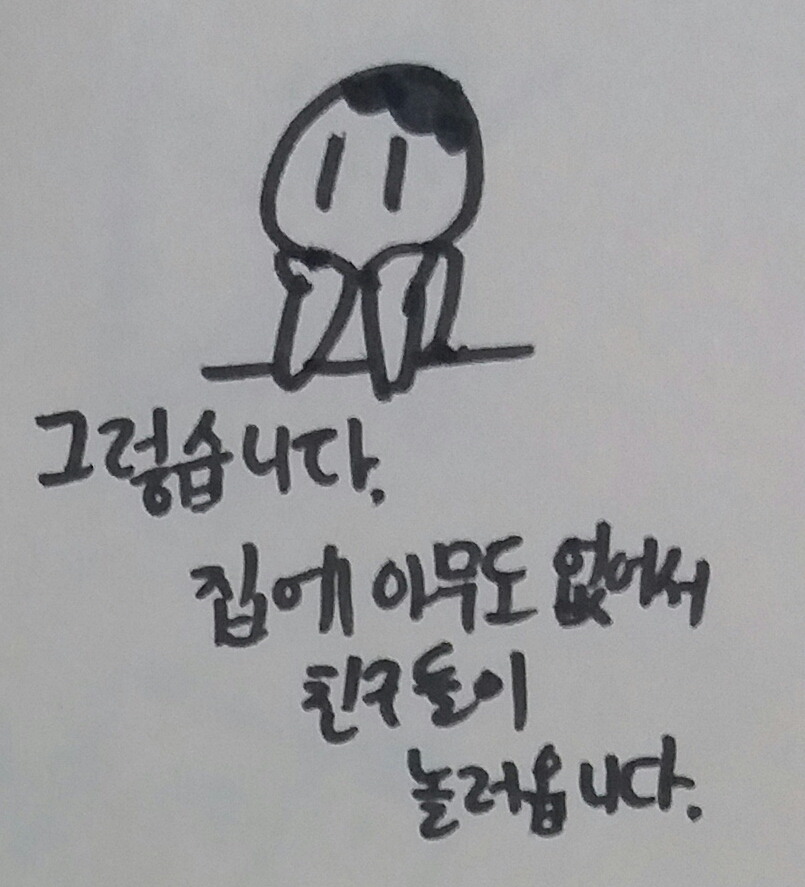 그렇습니다.
집에 아무도 없어서
친구들이
놀러옵니다.